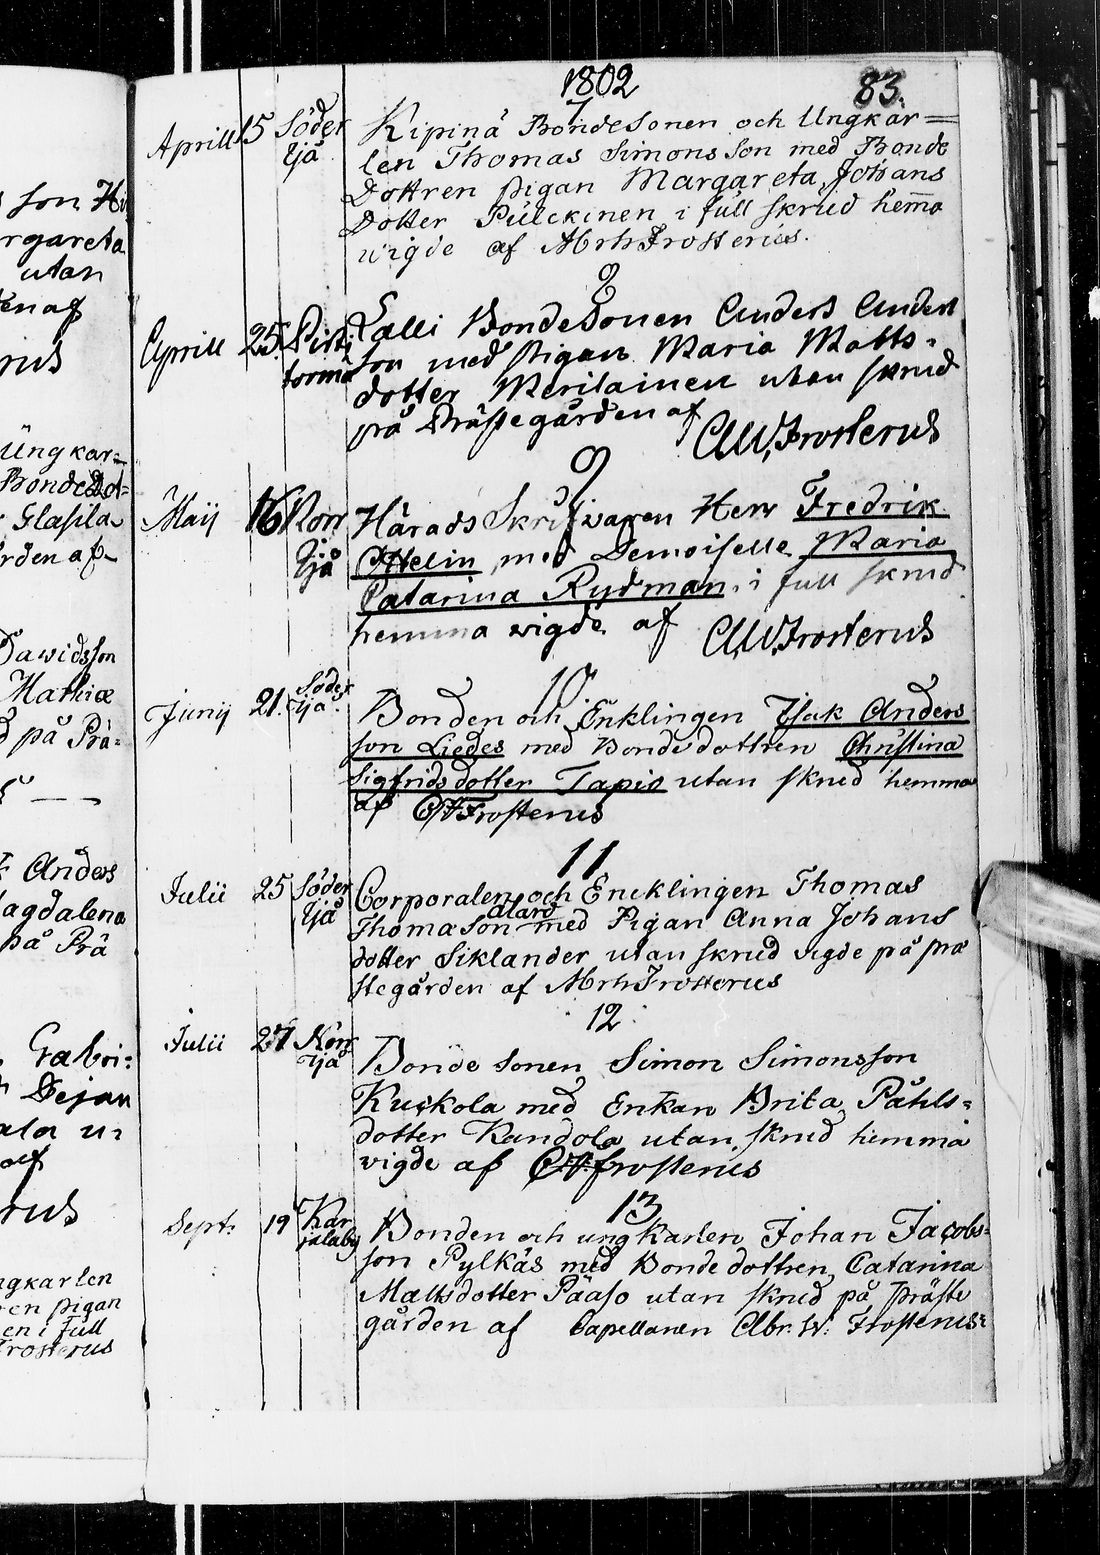 son Hi
rgareta
utan
en af
rius
Ungkar=
Bonde Dot=
Glasila
rden af
Dawidsson
Mathiæ
d på Prä=
Anders
agdalena
på Prä
Gabri=
Dejan
ala u=
af
rus
ngkarlen
ren pigan
en i full
Frosterus
1802
83.
7
Aprill 15 Söder Kipinä Bondesonen och Ungkar=
Ijå len Thomas Simons Son med Bonde
Dottren pigan Margareta Johans
Dotter Pulckinen i full skrud hemma
wigde af AbrhFrosterus.
8
Aprill 25. Lalli Bondesonen Anders Anders
son med pigan Maria Matts=
dotter Merilainen utan skrud
på Prästegården af
A.W.Frosterus
9
Maij 16 Norr Härads Skrifwaren Herr Fredrik
Ijå med Demoiselle Maria
Catarina Rydman, i full skrud
hemma vigde af A.W.Frosterus
10.
Junij 21. Söder Bonden och Enklingen Isak Anders
Ijå. son Liedes med Bondedottren Christina
Sigfridsdotter Tapio utan skrud hemma
af Frosterus
11
Julii 25 Söder Corporalen och Encklingen Thomas
Ijå Thomason ålard med Pigan Anna Johans
dotter Siklander utan skrud vigde på prä
stegården af AbrhFrosterus
12.
Julii 27 Norr Bonde sonen Simon Simonsson
Ijå Kuckola med Enkan Brita Påhls=
dotter Kandola utan skrud hemma
vigde af Frosterus
13
Sept: 19 Kar Bonden och ungkarlen Johan Jacobs=
jalaby son Pylkäs med Bondedottren Catarina
Mattsdotter Pääso utan skrud på präste
gården af Capellanen Abr. W. Frosterus: